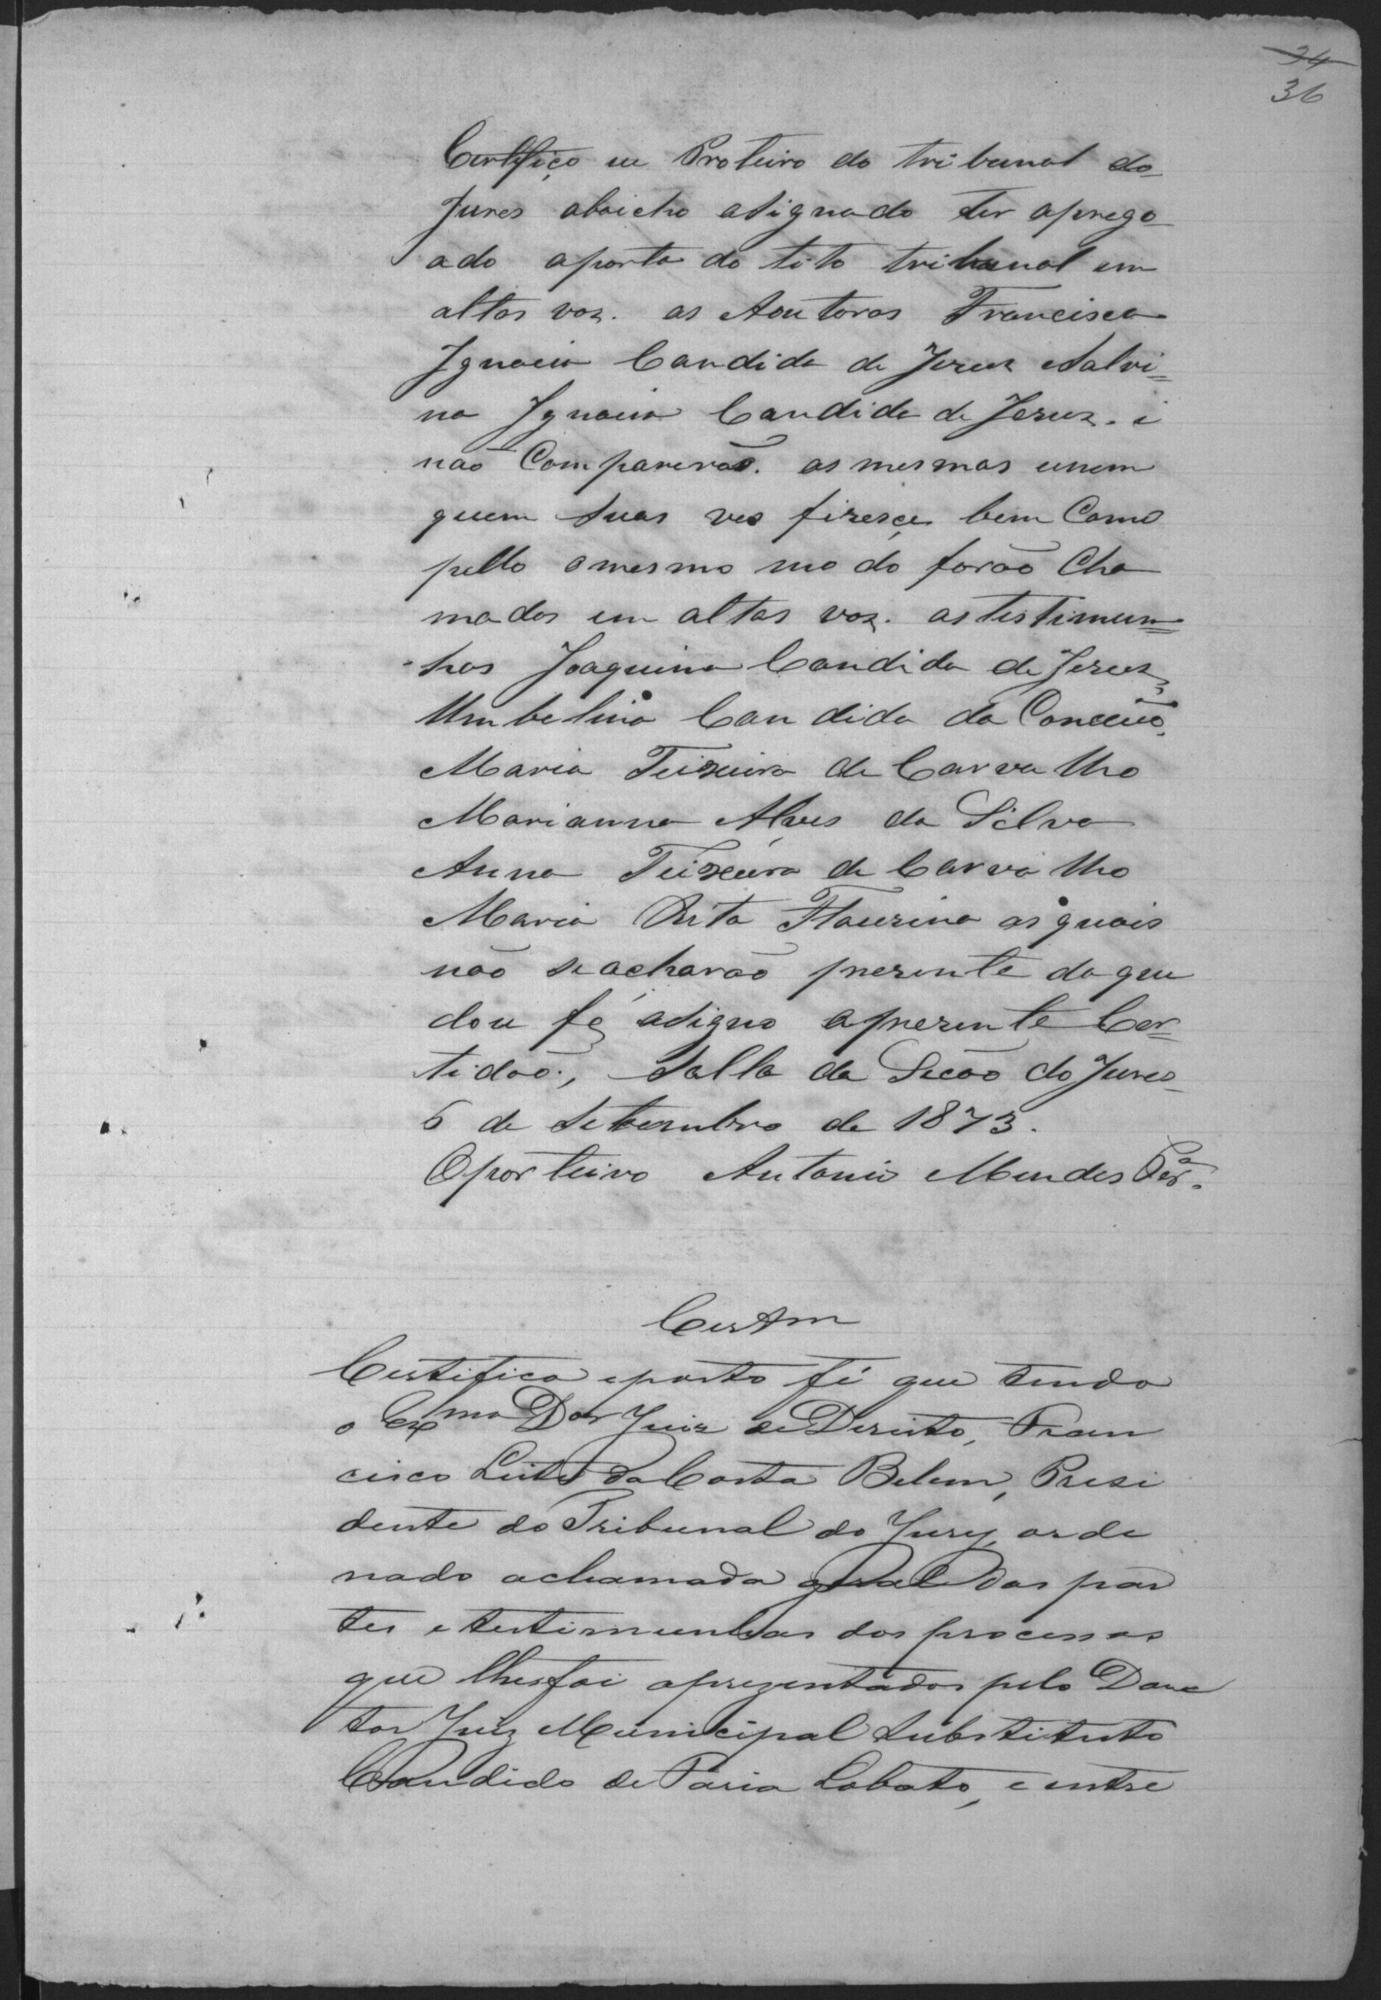 34
36
Certifico eu Proteiro do tribunal do
Jures abaicho asignado ter aprego
ado aporta do tito tribunal em
altas voz. as Autoras Francisca
Ignacia Candida de Jesus Salvi=
na Ignacia Candida de Jesus. i
não Compareráõ. as mesmas enem
quem suas ves fizese, bem Como
pello omesmo modo forão Cha
mados em altas voz. as testimun=
has Joaquina Candida de Jesus,
Umbelina Candida da Conceicõ,
Maria Teixeira de Carvalho
Marianna Alves da Silva
Anna Teixeira de Carvalho
Maria Rita Flaurina as quais
não se acharão prezente do que
dou fé, asigno aprezente Cer=
tidão., Salla da Secão do Jures
6 de Setembro de 1873.
Oporteiro Antonio Mendes
Certam
Certifico eporto fé que tendo
o Exmo Dor Juiz de Direito, Fran
cisco Leite da Costa Belem, Presi
dente do Tribunal do Jury, orde
nado achamada geral das par
tes e testimunhas dos processos
que lhesfoi aprezentados pelo Dou
tor Juiz Municipal Substituto
Candido de Faria Lobato, e entre